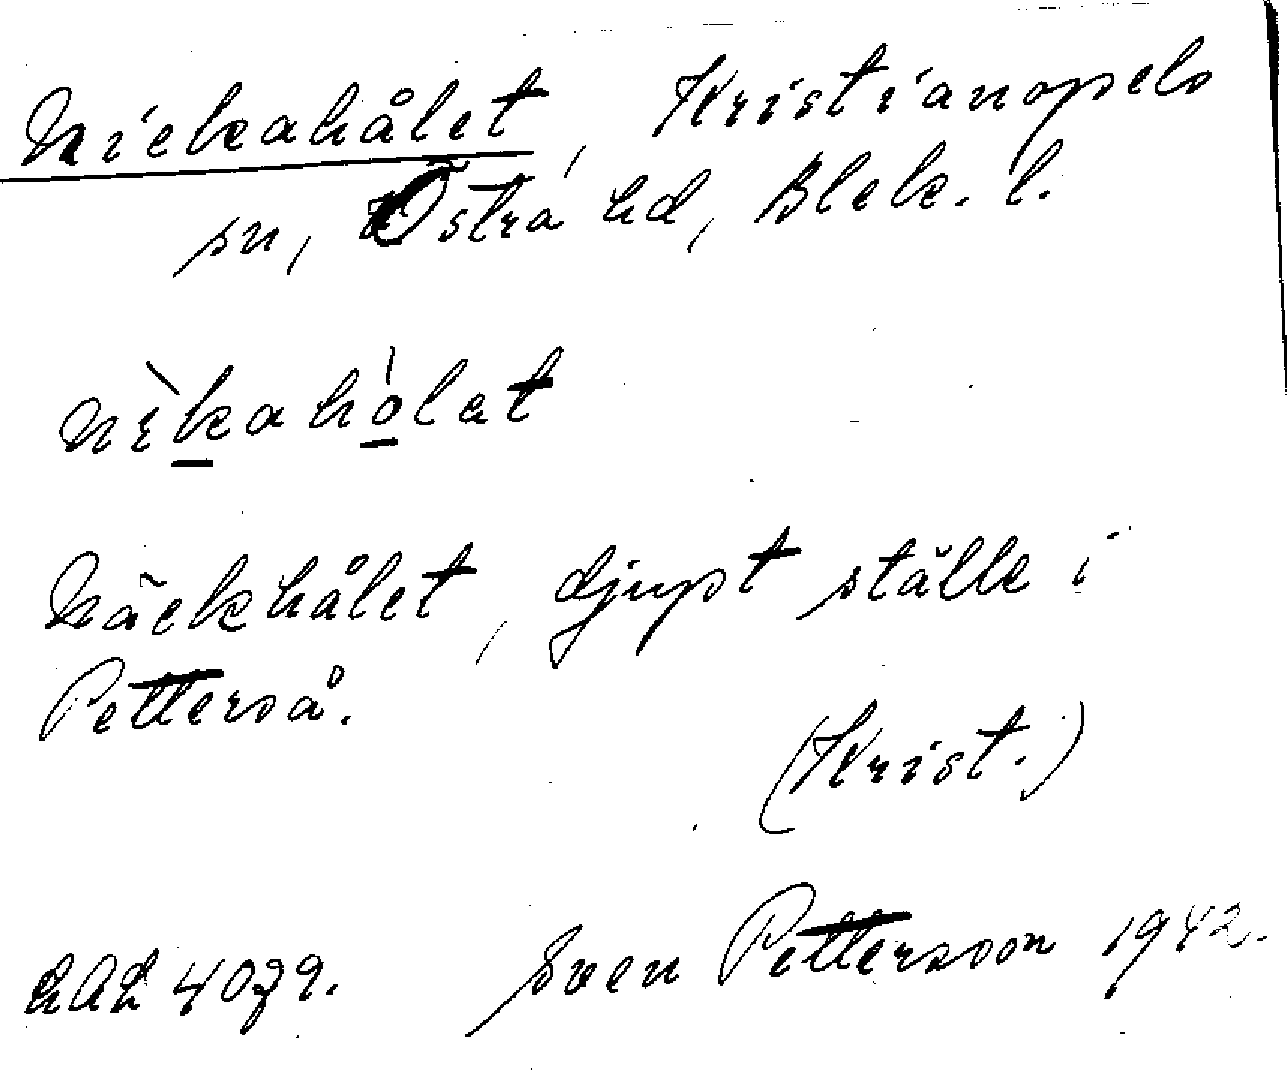 Nickahålet, Kristianopels
sn, Östra hd, Blek. l.
nìkahólat
Näckhålet, djupt ställe i
Petterså.
(Krist.)
LAL 4039. Sven Pettersson 1942.